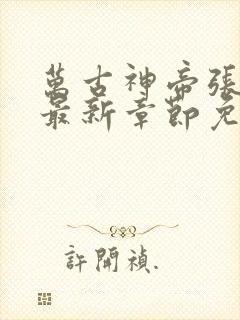 萬古神帝張
最新章節免
許開禎.